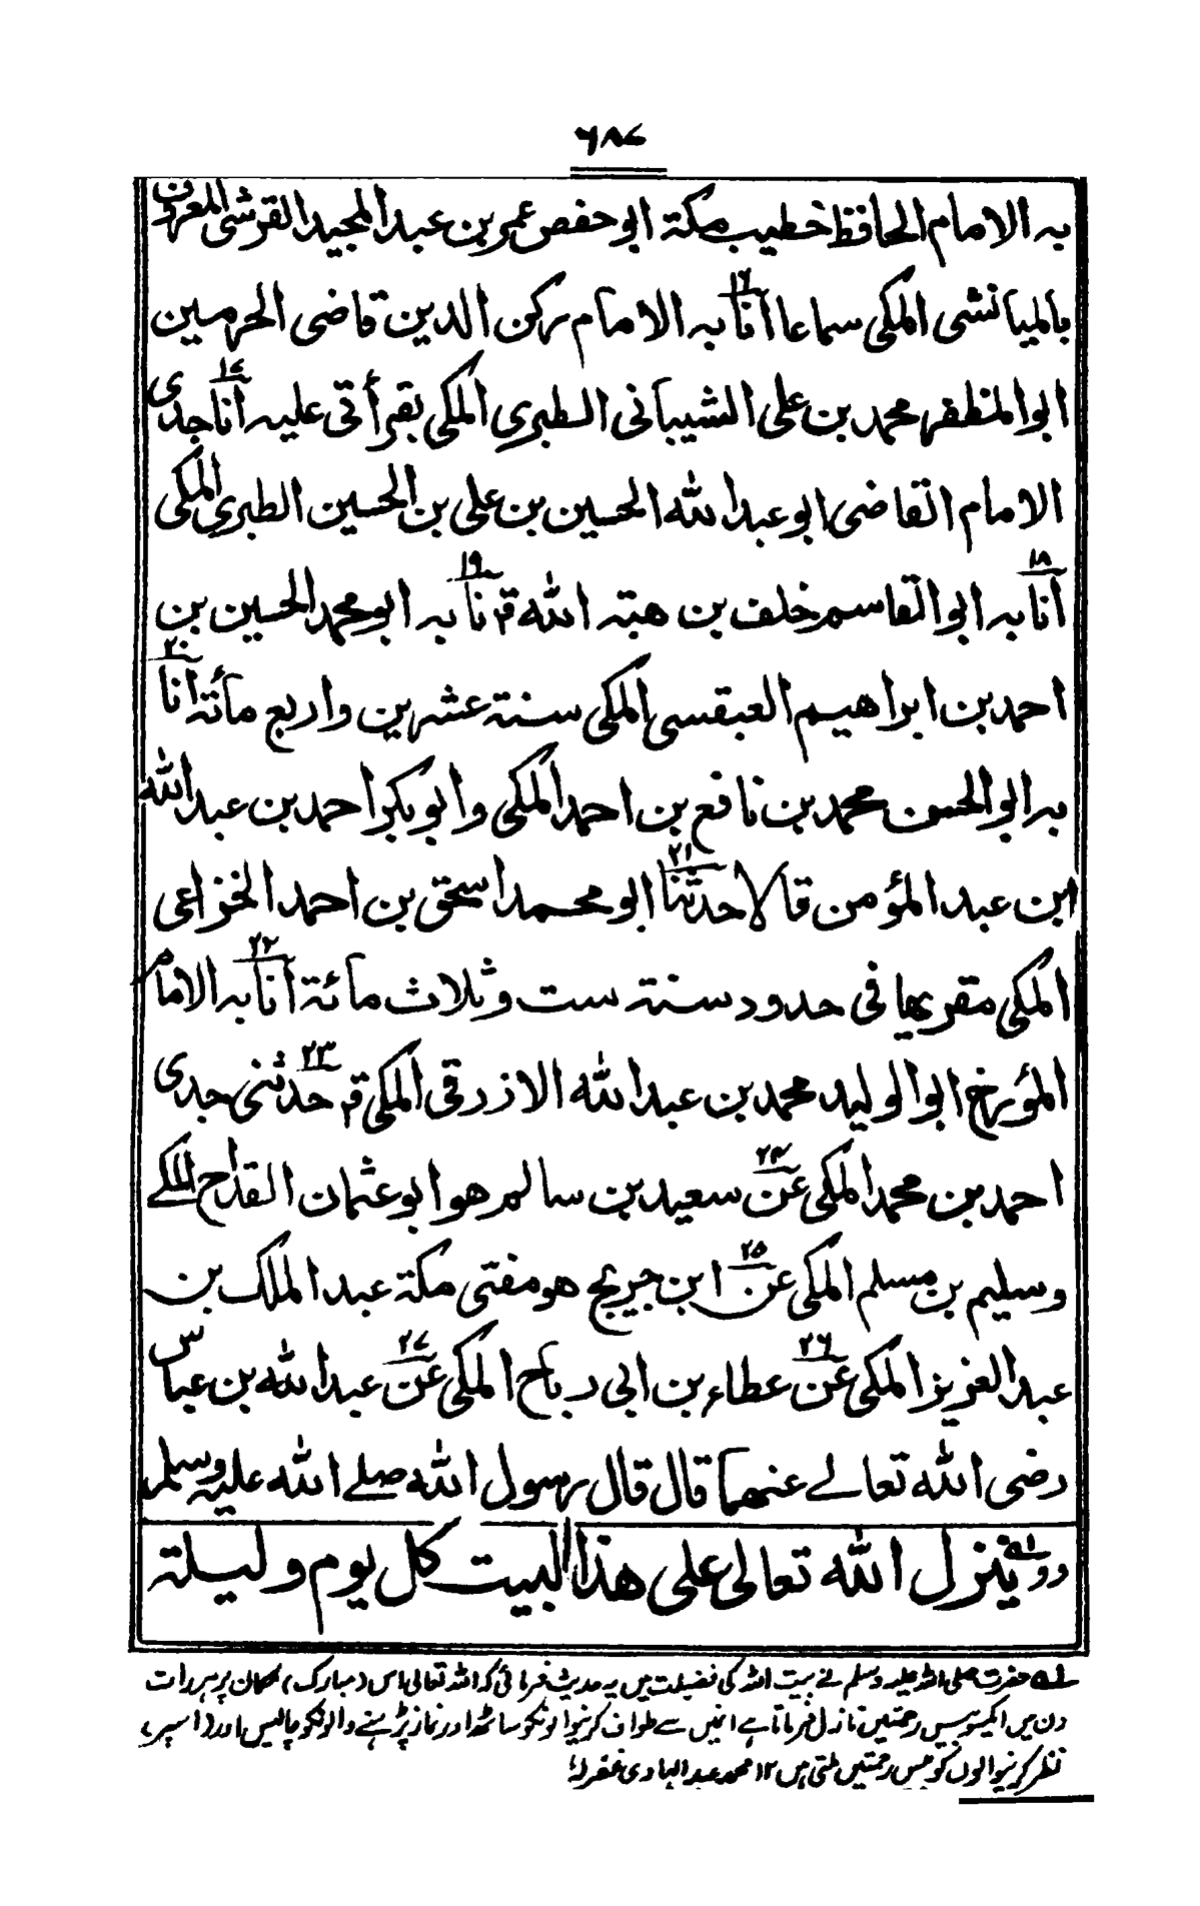 ٦٨٧
به الامام الحافظ خطيب مكة ابو حفص عمر بن عبد المجيد القرشى المعروف
بالميانشى المكى سماعا انا١٦ به الامام ركن الدين قاضى الحرمين
ابو المظفر محمد بن على الشيبانى الطبرى المكى بقرأتى عليه انا١٧ جدى
الامام القاضى ابو عبد الله الحسين بن على بن الحسين الطبرى المكى
انا١٨ به ابو القاسم خلف بن هبته الله قم نا١٩ به ابو محمد الحسين بن
احمد بن ابراهيم العبقسى المكى سنة عشرين واربع مأته انا٢٠
به ابو الحسن محمد بن نافع بن احمد المكى وابو بكر احمد بن عبد الله
ابن عبد المؤمن قالا حدثنا٢١ ابو محمد اسحق بن احمد الخزاعى
المكى مقريها فى حدود سنة ست وثلاث مائة انا٢٢ به الامام
المؤرخ ابو الوليد محمد بن عبد الله الازرقى المكى قم حدثنى٢٣ جدى
احمد بن محمد المكى عن٢٤ سعيد بن سالم هو ابو عثمان القداح المكے
وسليم بن مسلم المكى عن٢٥ ابن جريج هو مفتى مكة عبد الملك بن
عبد العزيز المكى عن٢٦ عطاء بن ابى رباح المكى عن٢٧ عبد الله بن عباس
رضى الله تعالے عنهما قال قال رسول الله صلے الله عليه وسلم
وو ينزل الله تعالى على هذا البيت كل يوم وليلة
لہ حضرت صلی اللہ علیہ وسلم نے بیت اللہ کی فضیلت میں یہ حدیث فرمائی کہ اللہ تعالی اس (مبارک) مکان پر ہر رات
دن میں ایکسو بیس رحمتیں نازل فرماتا ہے انمیں سے طواف کرنیوالونکو ساٹھ اور نماز پڑہنے والونکو چالیس اور (اسپر)
نظر کرنیوالوں کو بیس رحمتیں ملتی ہیں ١٢ محمد عبد الہادی غفرلہ